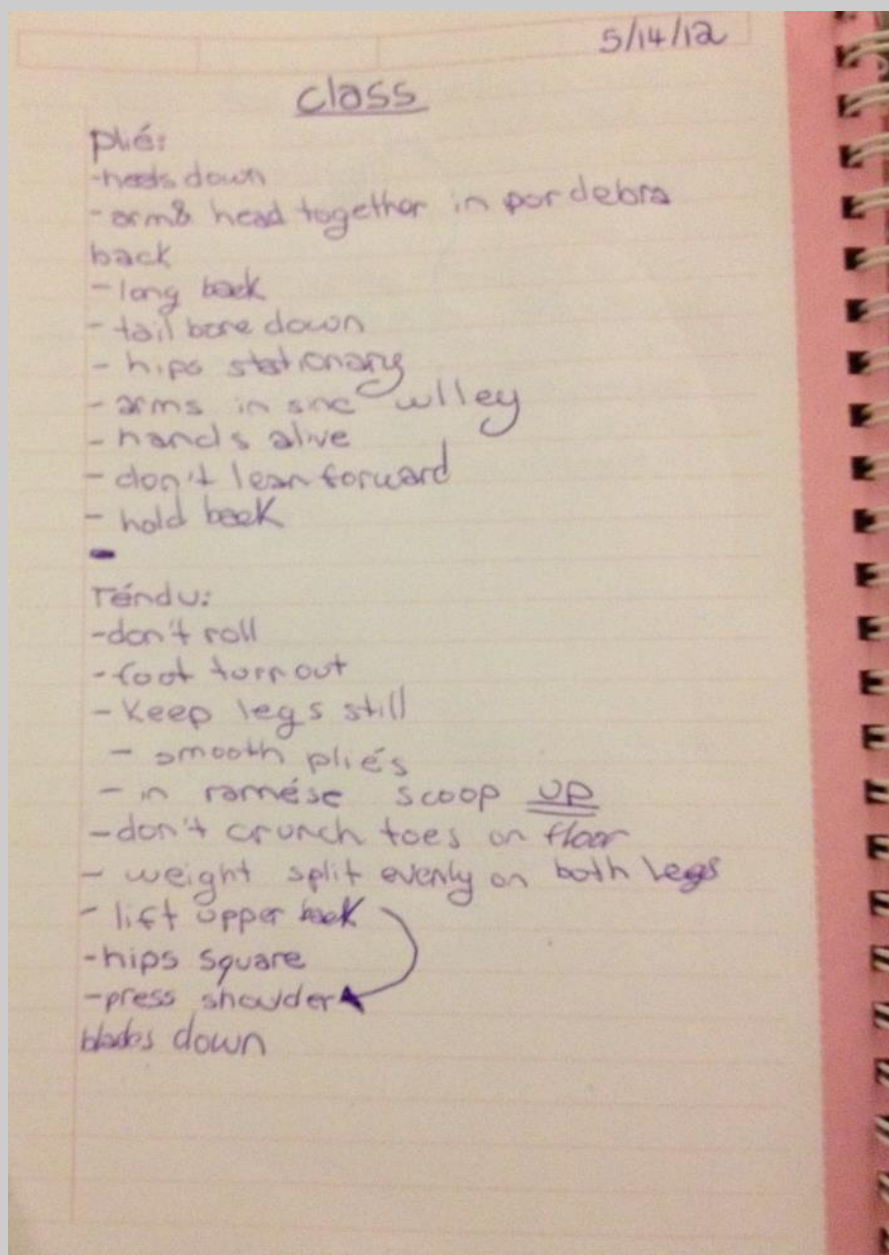 5/14/12
class
plié:
-heels down
-arm & head together in por debra
back
-long back
-tail bone down
-hips stationary
-arms in sinc w/lley
-hands alive
-don't lean forward
-hold back
-
Téndu:
-don't roll
-foot turn out
-Keep legs still
-smooth pliés
-in ramése scoop UP
-don't crunch toes on floor
-weight split evenly on both legs
-lift upper back
-hips square
-press shoulder
blades down